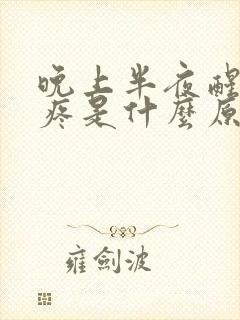 晚上半夜醒
疼是什麼原
雍劍波